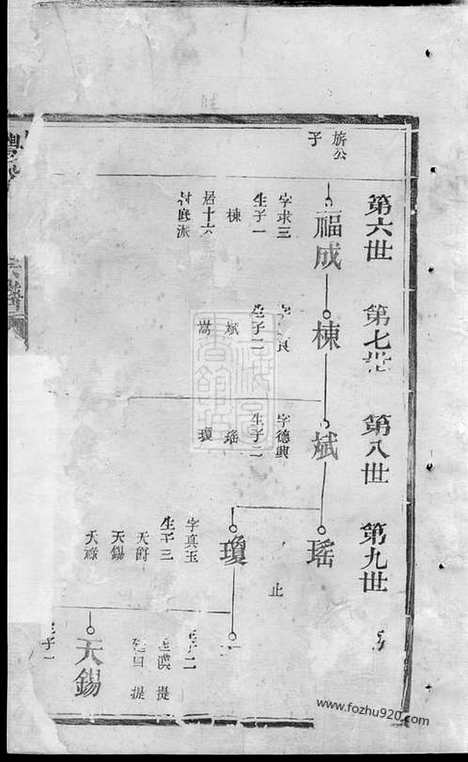 旂公
子
第六世
第七世
第八世
第九世
福成
字求三
生子一
棟
居十六
棟
生子二
斌
嵩
斌
字德興
生子二
瑤
瓊
瑤
止
瓊
字真玉
生子三
天爵
天錫
天祿
天錫
www.fozhu920.com